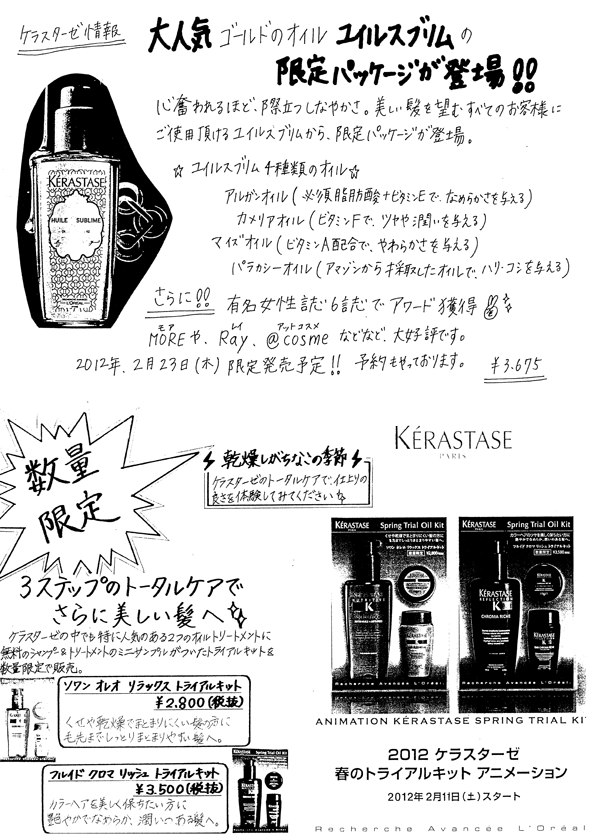 ケラスターゼ情報
大人気 ゴールドのオイル ユイルスブリムの
限定パッケージが登場!!
心奪われるほど、際立つしなやかさ。美しい髪を望むすべてのお客様に
ご使用頂けるユイルスブリムから、限定パッケージが登場。
☆ ユイルスブリム4種類のオイル☆
アルガンオイル(必須脂肪酸+ビタミンEで、なめらかさを与える)
カメリアオイル(ビタミンFで、ツヤや潤いを与る)
マイズオイル(ビタミンA配合で、やわらかさを与える)
パラカシーオイル(アマゾンから採取したオイルで、ハリ・コシを与える)
KÉRASTASE
HUILE SUBLIME
L'ORÉAL
さらに!! 有名女性誌6誌でアワード獲得
モア レイ アットコスメ
MOREや、Ray、@cosmeなどなど、大好評です。
2012年、2月23日(木)限定発売予定!! 予約もやっております。 ¥3.675
数量
限定
⚡乾燥しがちなこの季節⚡
ケラスターゼのトータルケアで、仕上りの
良さを体験してみてください☆
KÉRASTASE
PARIS
3ステップのトータルケアで
さらに美しい髪へ☆
ケラスターゼの中でも特に人気のある2つのオイルトリートメントに
無料のシャンプー&トリートメントのミニサンプルがついたトライアルキットを
数量限定で販売。
ソワン オレオ リラックス トライアルキット
¥2.800(税抜)
くせや乾燥でまとまりにくい髪の方に
毛先までしっとりまとまりやすい髪へ。
フルイド クロマ リッシュ トライアルキット
¥3.500(税抜)
カラーヘアを美しく保ちたい方に
艶やかでなめらか、潤いのある髪へ。
KÉRASTASE Spring Trial Oil Kit
KÉRASTASE Spring Trial Oil Kit
KÉRASTASE
REFLECTION
CHROMA RICHE
Recherche Avancée L'Oréal
ANIMATION KÉRASTASE SPRING TRIAL KI
2012 ケラスターゼ
春のトライアルキット アニメーション
2012年2月11日(土)スタート
Recherche Avancée L'Oréal